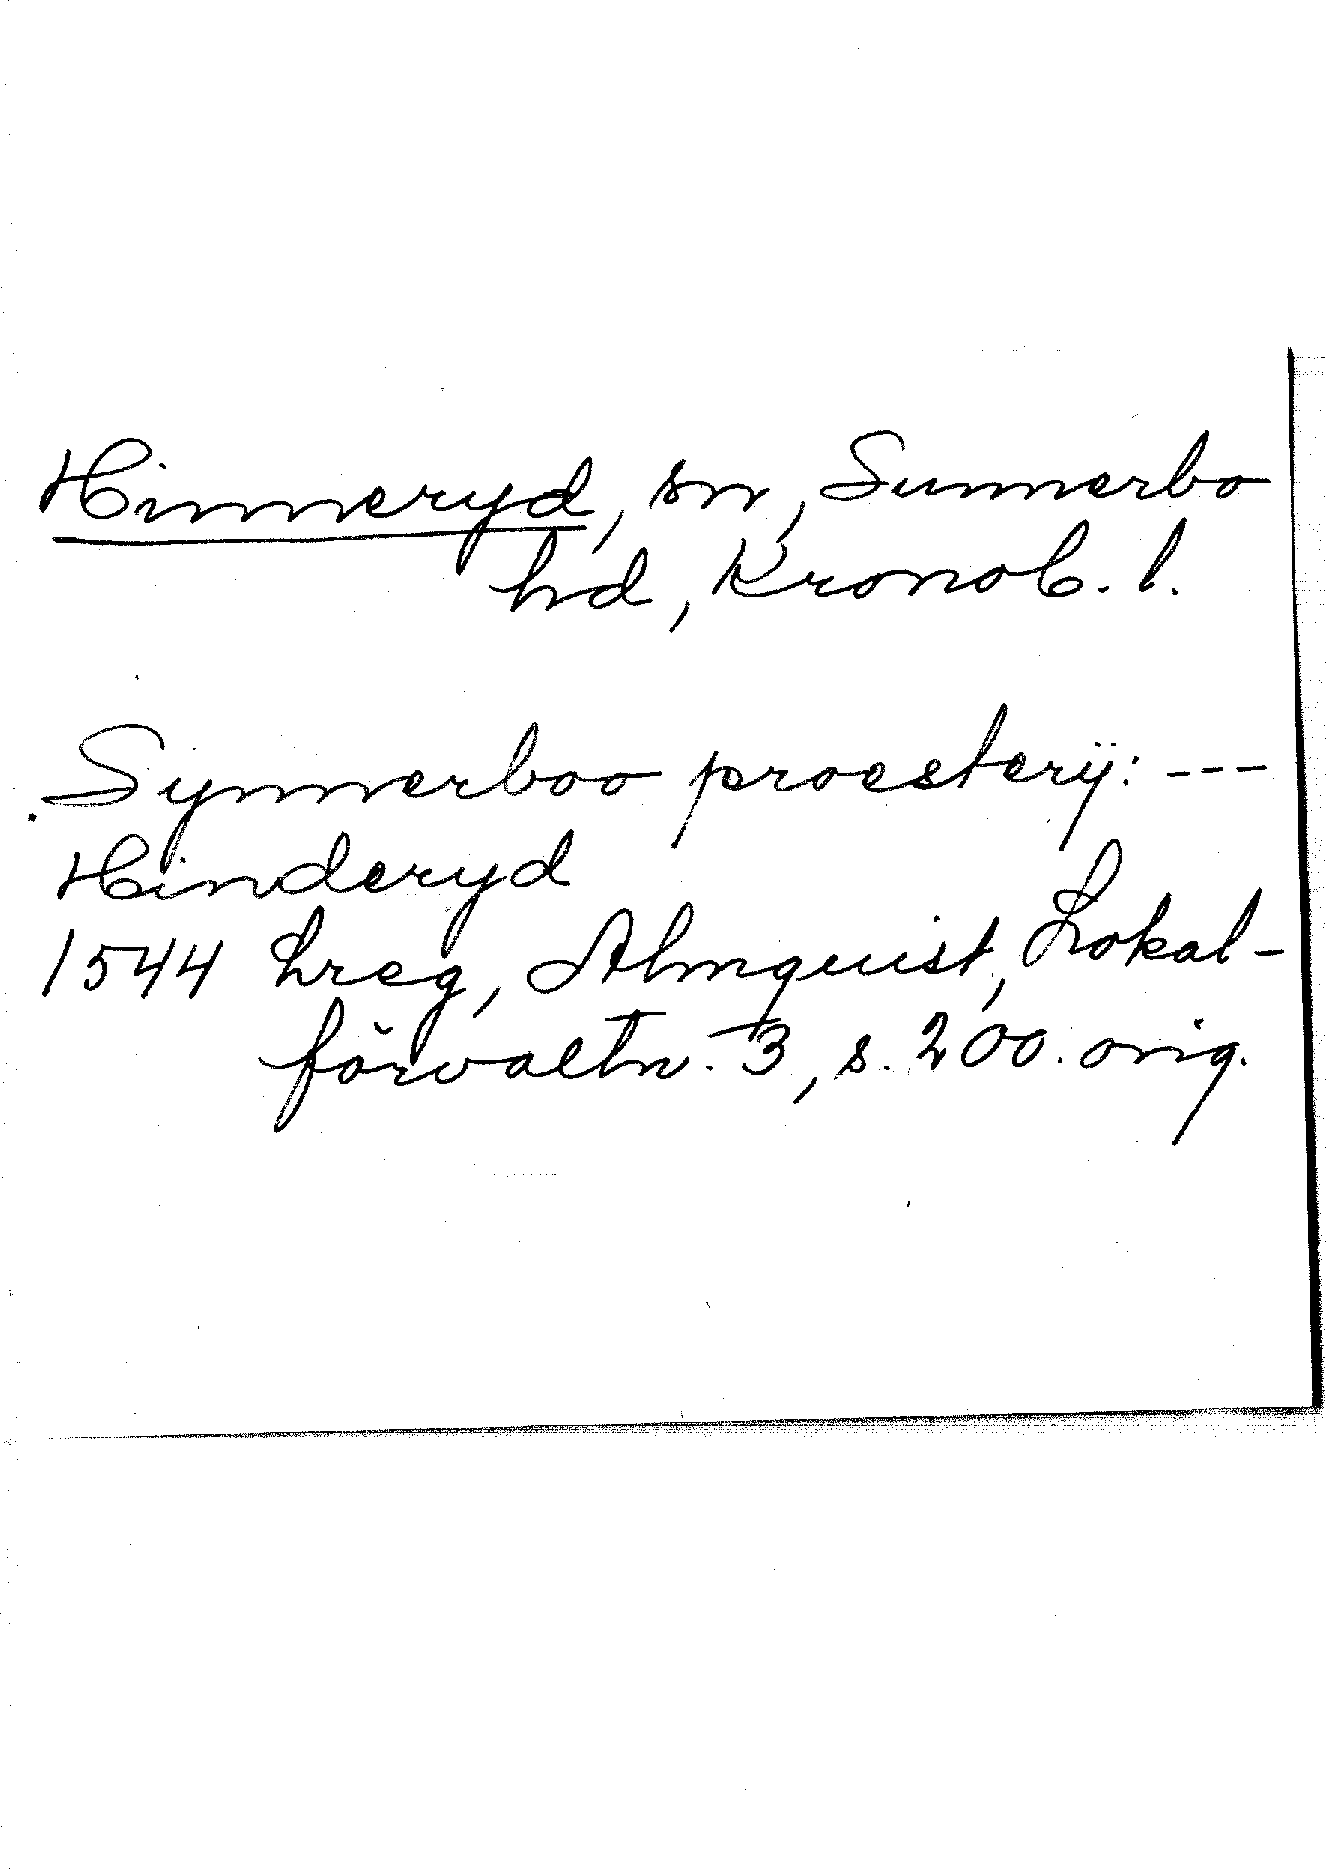 Hinneryd, sn, Sunnerbo
hd, Kronob. l.
Synnerboo proesterÿ: ---
Hinderyd
1544 Lreg, Almquist, Lokal-
förvaltn. 3, s. 200. orig.